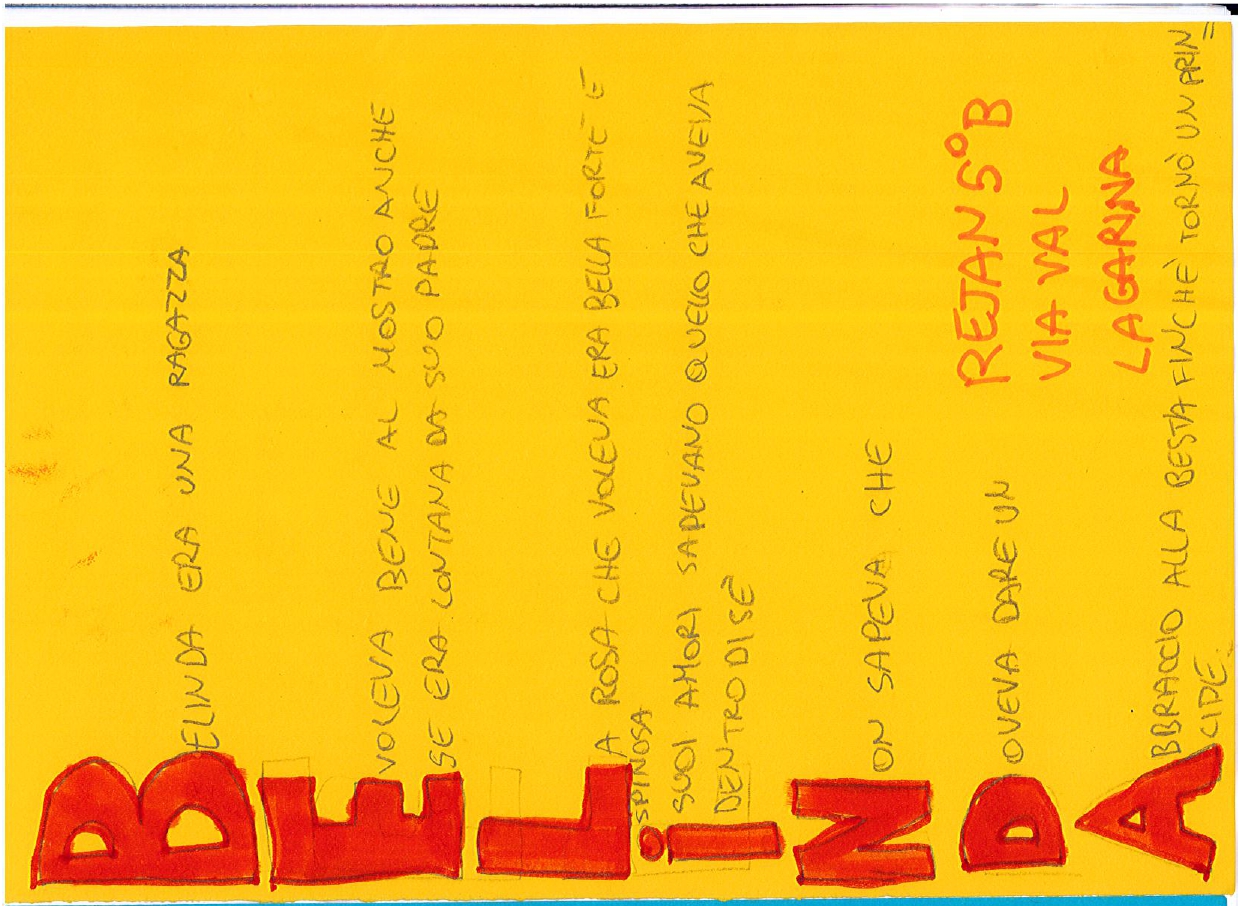 BELINDA ERA UNA RAGAZZA
E VOLEVA BENE AL MOSTRO ANCHE
SE ERA LONTANA DA SUO PADRE
LA ROSA CHE VOLEVA ERA BELLA FORTE E
SPINOSA
i SUOI AMORI SAPEVANO QUELLO CHE AVEVA
DENTRO DI SÈ
NON SAPEVA CHE
DOVEVA DARE UN
ABBRACCIO ALLA BESTA FINCHÈ TORNÒ UN PRIN=
CIPE.
REJAN 5°B
VIA VAL
LAGARINA